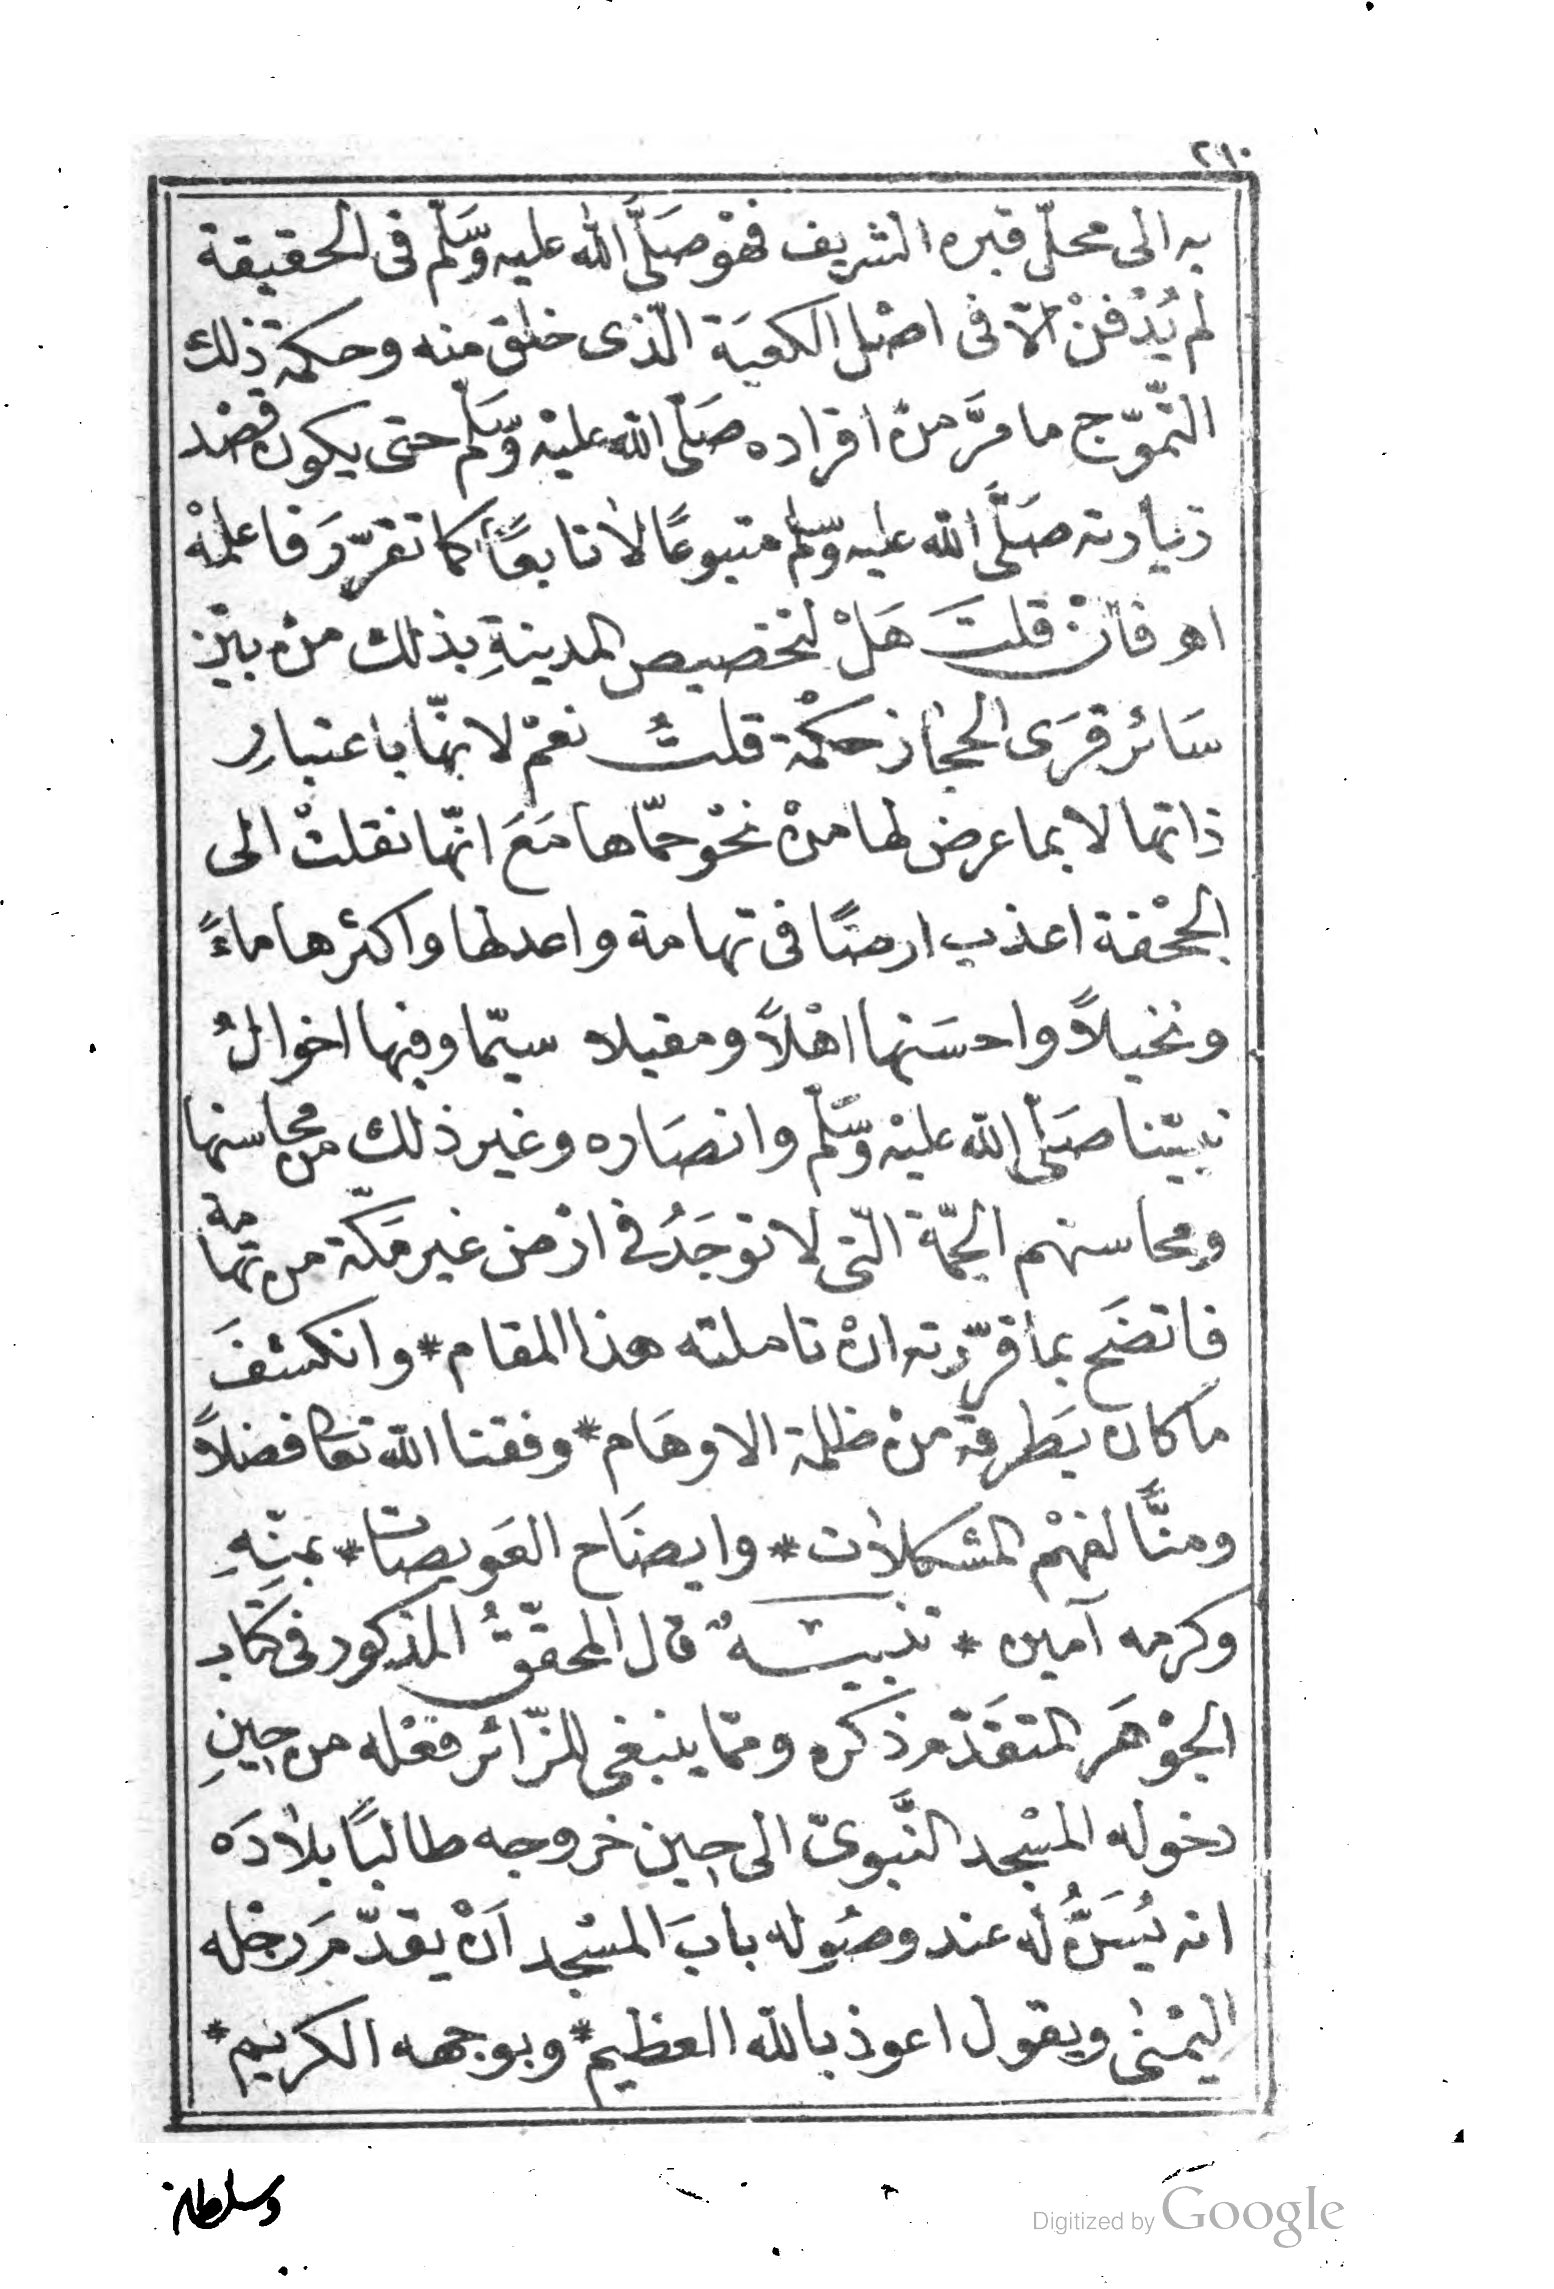 ٢١٠
به الى محلّ قبره الشريف فهْو صَلَّى الله عليه وَسَّلم فى الحقيقة
لم يُدْفنْ الّا فى اصْل الكعبَة الّذى خلق منه وحكمة ذلك
التّموّج ما مرَّ منْ افراده صَلّى الله عليْه وَسَّلم حتى يكون قصْد
زيارته صَلَّى الله عليه وسّلم متبوعًا لا تابعًا كما تقرّرَ فاعلمْه
اه فانْ قلتَ هَلْ لتخصيص المدينةِ بذلك منْ بيْن
سَائر قرَى الحجاز حكْمة قلتُ نعمْ لانهّا باعتبارِ
ذاتها لا بما عرض لها منْ نحْو حمّاها مَعَ انّها نقلتْ الى
الجحْفة اعذب ارضًا فى تهامة واعدلها واكثرها ماءً
ونخيلاً واحسَنها اهْلاً ومقيلا سيّما وفيها اخوالُ
نبيّنا صَلّى الله عليْه وَسَّلم وانصَاره وغير ذلك من محاسنها
ومحاسنهم الجمّة الّتى لا توجَدُ فى ارْض غير مَكّة من تهامة
فاتضَح بما قرّرته انْ تاملته هذا المقام * وانكشفَ
ما كان يَطرقهُ منْ ظلمة الاوهَام * وفقنا الله تعا فضلاً
ومنًّا لفهْم المشكلات * وايضَاح العَويصَات * بمنّهِ
وكرمه آمين * تنبيـــهٌ قال المحقّقُ المذكور فى كتاب
الجوْهَر المتقَدّم ذكره وممّا ينبغى للزّائر فعْله من حينِ
دخوله المسْجد النَّبوىّ الى حين خروجه طالبًا بلادَه
انه يُسَنُّ لهُ عند وصُوله بابَ المسْجد اَنْ يقدّمَ رجْله
اليمْنى ويقول اعوذ بالله العظيم * وبوجهه الكريم *
وسلطانه
Digitized by Google